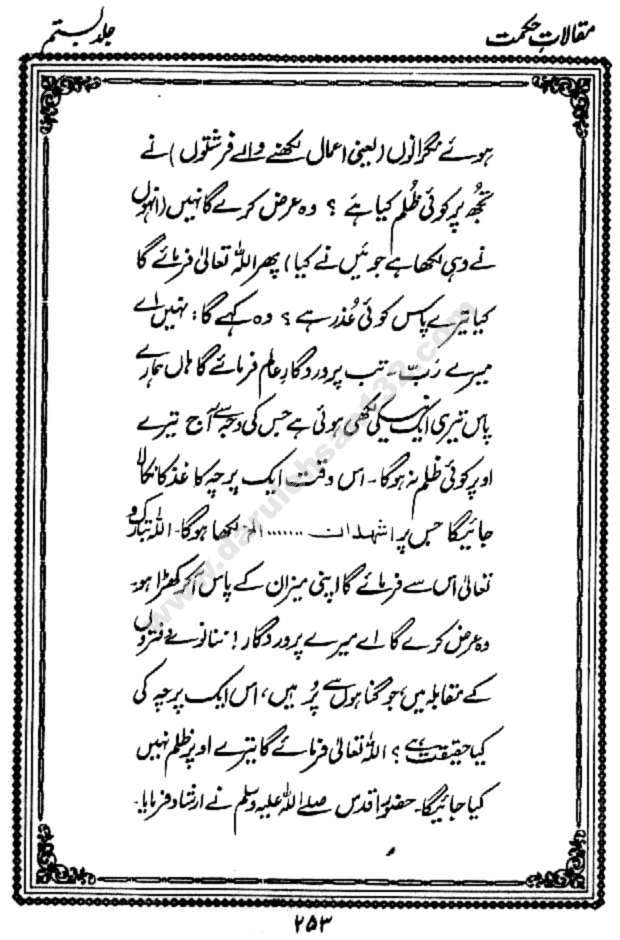 مقالاتِ حکمت
جلد بستم
ہوئے نگرانوں (یعنی اعمال لکھنے والے فرشتوں) نے
تجھ پر کوئی ظلم کیا ہے؟ وہ عرض کرے گا نہیں (انہوں
نے وہی لکھا ہے جو میں نے کیا) پھر اللہ تعالیٰ فرمائے گا
کیا تیرے پاس کوئی عُذر ہے؟ وہ کہے گا: نہیں اے
میرے رَبّ۔ تب پروردگارِ عالم فرمائے گا ہاں ہمارے
پاس تیری ایک نیکی لکھی ہوئی ہے جس کی وجہ سے آج تیرے
اوپر کوئی ظلم نہ ہوگا۔ اس وقت ایک پرچہ کاغذ کا نکالا
جائیگا جس پر اشہدان ....... الخ لکھا ہوگا۔ اللہ تبارک و
تعالیٰ اُس سے فرمائے گا اپنی میزان کے پاس آکر کھڑا ہو۔
وہ عرض کرے گا اے میرے پروردگار! ننانوے دفتروں
کے مقابلہ میں، جو گناہوں سے پُر ہیں، اس ایک پرچہ کی
کیا حقیقت ہے؟ اللہ تعالیٰ فرمائے گا تیرے اوپر ظلم نہیں
کیا جائیگا۔ حضورِ اقدس صلے اللہ علیہ وسلم نے ارشاد فرمایا۔
۲۵۳